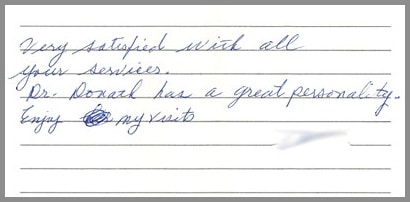 Very satisfied with all
your services.
Dr. Donath has a great personality.
Enjoy my visits